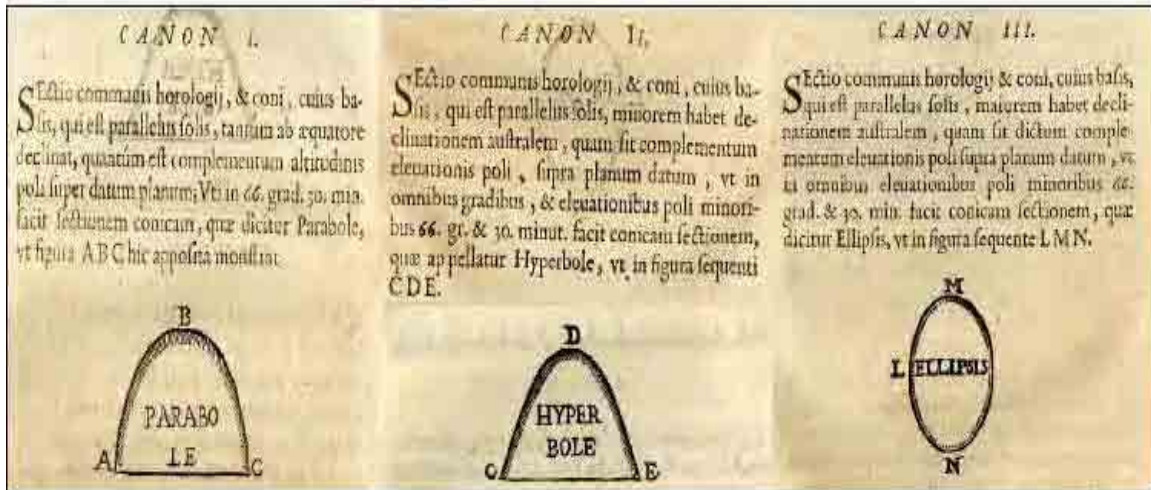 CANON I.
SEctio communis horologij, & coni, cuius ba-
sis, qui est parallelus solis, tantum ab æquatore
declinat, quantum est complementum altitudinis
poli super datum planum; Vti in 66. grad. 30. min.
facit sectionem conicam, quæ dicitur Parabole,
vt figura ABC hic apposita monstrat.
B
PARABO
LE
A C
CANON II.
SEctio communis horologij, & coni, cuius ba-
sis, qui est parallelus solis, minorem habet de-
clinationem australem, quam sit complementum
eleuationis poli, supra planum datum, vt in
omnibus gradibus, & eleuationibus poli minori-
bus 66. gr. & 30. minut. facit conicam sectionem,
quæ appellatur Hyperbole, vt in figura sequenti
CDE.
D
HYPER
BOLE
C E
CANON III.
SEctio communis horologij & coni, cuius basis,
qui est parallelus solis, maiorem habet decli-
nationem australem, quam sit dictum comple-
mentum eleuationis poli supra planum datum, vt
in omnibus eleuationibus poli minoribus 66.
grad. & 30. min. facit conicam sectionem, quæ
dicitur Ellipsis, vt in figura sequente LMN.
M
L ELLIPSIS
N